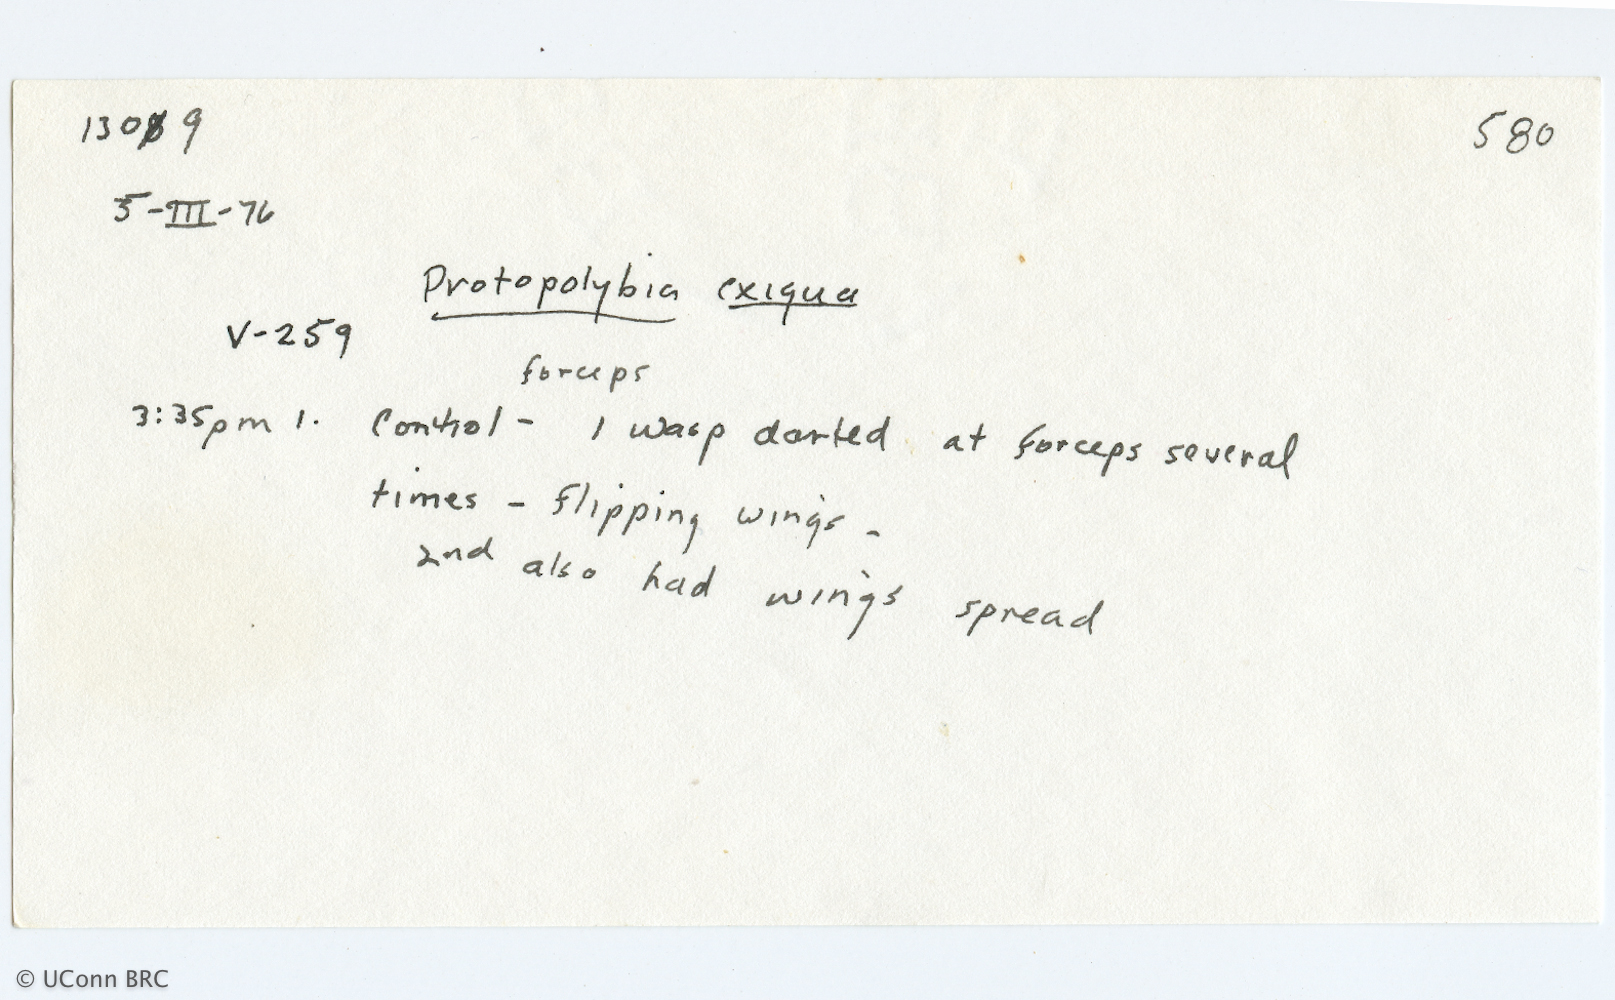 1309
580
5-III-76
Protopolybia exigua
V-259
forceps
3:35pm 1. Control - 1 wasp darted at forceps several
times - flipping wings -
2nd also had wings spread
© UConn BRC